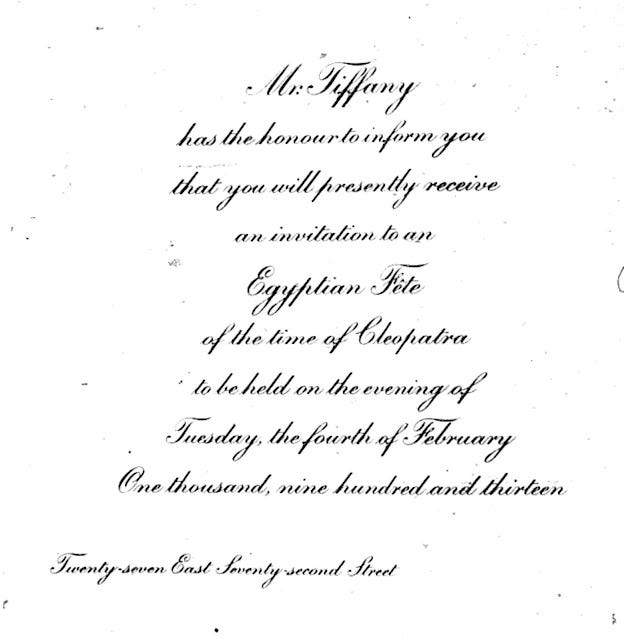 Mr. Tiffany
has the honour to inform you
that you will presently receive
an invitation to an
Egyptian Fête
of the time of Cleopatra
to be held on the evening of
Tuesday, the fourth of February
One thousand, nine hundred and thirteen
Twenty-seven East Seventy-second Street